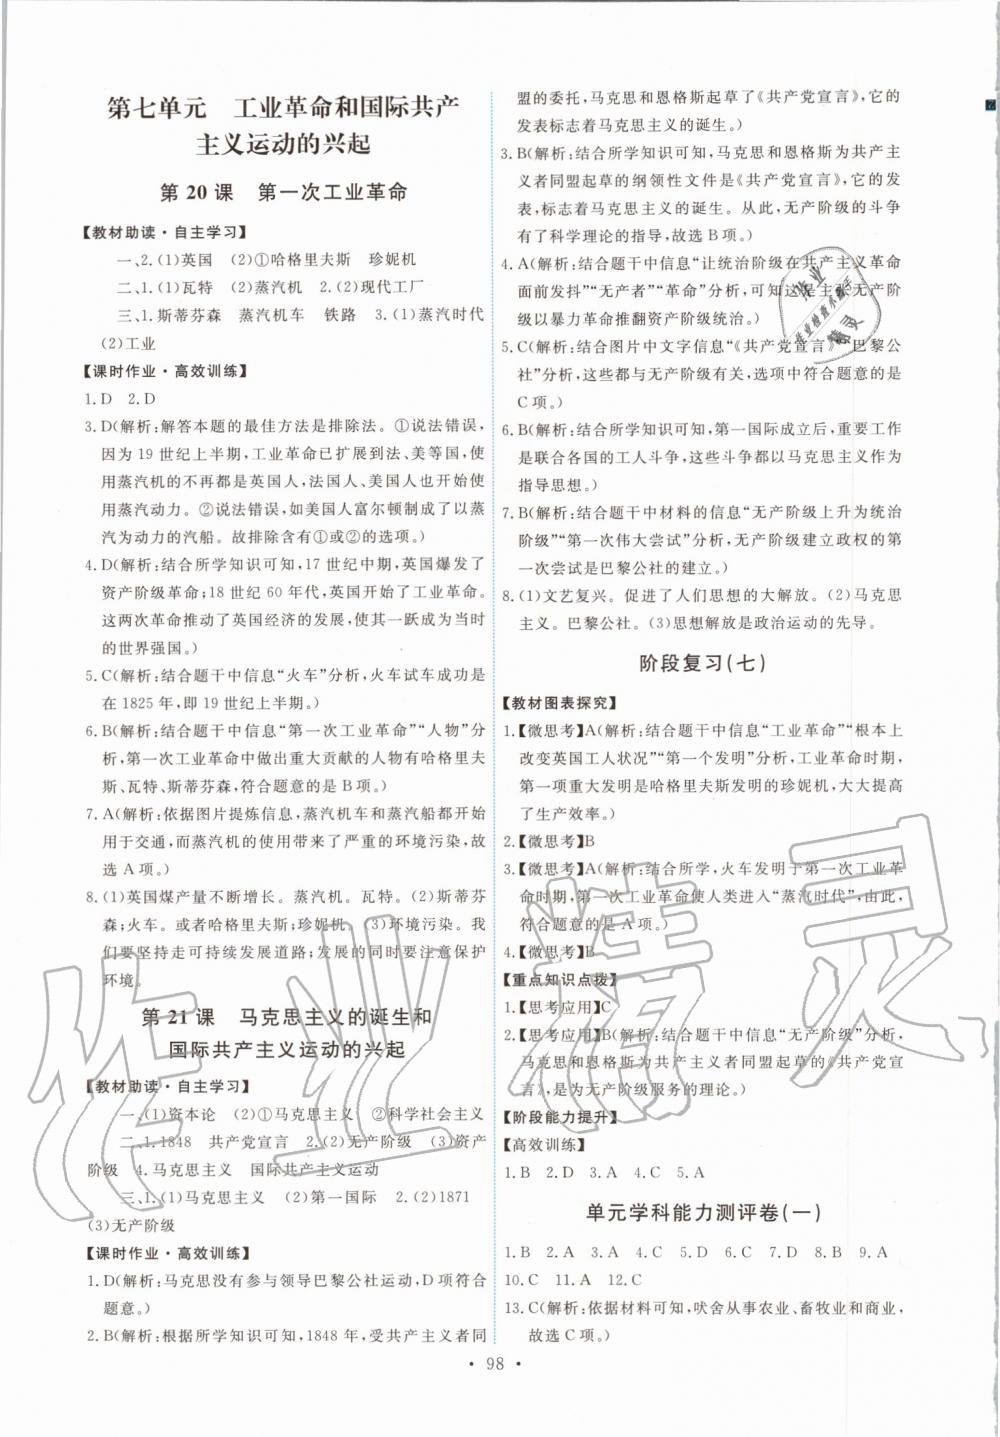 第七单元　工业革命和国际共产
主义运动的兴起
第 20 课　第一次工业革命
【教材助读·自主学习】
一、2.(1)英国　(2)①哈格里夫斯　珍妮机
二、1.(1)瓦特　(2)蒸汽机　2.(2)现代工厂
三、1.斯蒂芬森　蒸汽机车　铁路　3.(1)蒸汽时代
(2)工业
【课时作业·高效训练】
1.D　2.D
3.D(解析:解答本题的最佳方法是排除法。①说法错误,
因为 19 世纪上半期,工业革命已扩展到法、美等国,使
用蒸汽机的不再都是英国人,法国人、美国人也开始使
用蒸汽动力。②说法错误,如美国人富尔顿制成了以蒸
汽为动力的汽船。故排除含有①或②的选项。)
4.D(解析:结合所学知识可知,17 世纪中期,英国爆发了
资产阶级革命;18 世纪 60 年代,英国开始了工业革命。
这两次革命推动了英国经济的发展,使其一跃成为当时
的世界强国。)
5.C(解析:结合题干中信息“火车”分析,火车试车成功是
在 1825 年,即 19 世纪上半期。)
6.B(解析:结合题干中信息“第一次工业革命”“人物”分
析,第一次工业革命中做出重大贡献的人物有哈格里夫
斯、瓦特、斯蒂芬森,符合题意的是 B 项。)
7.A(解析:依据图片提炼信息,蒸汽机车和蒸汽船都开始
用于交通,而蒸汽机的使用带来了严重的环境污染,故
选 A 项。)
8.(1)英国煤产量不断增长。蒸汽机。瓦特。(2)斯蒂芬
森;火车。或者哈格里夫斯;珍妮机。(3)环境污染。我
们要坚持走可持续发展道路;发展的同时要注意保护
环境。
第 21 课　马克思主义的诞生和
国际共产主义运动的兴起
【教材助读·自主学习】
一、(1)资本论　(2)①马克思主义　②科学社会主义
二、1.1848　共产党宣言　2.(2)无产阶级　(3)资产
阶级　4.马克思主义　国际共产主义运动
三、1.(1)马克思主义　(2)第一国际　2.(2)1871
(3)无产阶级
【课时作业·高效训练】
1.D(解析:马克思没有参与领导巴黎公社运动,D 项符合
题意。)
2.B(解析:根据所学知识可知,1848 年,受共产主义者同
盟的委托,马克思和恩格斯起草了《共产党宣言》,它的
发表标志着马克思主义的诞生。)
3.B(解析:结合所学知识可知,马克思和恩格斯为共产主
义者同盟起草的纲领性文件是《共产党宣言》,它的发
表,标志着马克思主义的诞生。从此,无产阶级的斗争
有了科学理论的指导,故选 B 项。)
4.A(解析:结合题干中信息“让统治阶级在共产主义革命
面前发抖”“无产者”“革命”分析,可知这是主张无产阶
级以暴力革命推翻资产阶级统治。)
5.C(解析:结合图片中文字信息“《共产党宣言》、巴黎公
社”分析,这些都与无产阶级有关,选项中符合题意的是
C 项。)
6.B(解析:结合所学知识可知,第一国际成立后,重要工作
是联合各国的工人斗争,这些斗争都以马克思主义作为
指导思想。)
7.B(解析:结合题干中材料的信息“无产阶级上升为统治
阶级”“第一次伟大尝试”分析,无产阶级建立政权的第
一次尝试是巴黎公社的建立。)
8.(1)文艺复兴。促进了人们思想的大解放。(2)马克思
主义。巴黎公社。(3)思想解放是政治运动的先导。
阶段复习(七)
【教材图表探究】
1.【微思考】A(解析:结合题干中信息“工业革命”“根本上
改变英国工人状况”“第一个发明”分析,工业革命时期,
第一项重大发明是哈格里夫斯发明的珍妮机,大大提高
了生产效率。)
2.【微思考】B
3.【微思考】A(解析:结合所学,火车发明于第一次工业革
命时期,第一次工业革命使人类进入“蒸汽时代”,由此,
符合题意的是 A 项。)
4.【微思考】B
【重点知识点拨】
1.【思考应用】C
2.【思考应用】B(解析:结合题干中信息“无产阶级”分析,
马克思和恩格斯为共产主义者同盟起草的《共产党宣
言》,是为无产阶级服务的理论。)
【阶段能力提升】
【高效训练】
1.B　2.D　3.A　4.C　5.A
单元学科能力测评卷(一)
1.B　2.A　3.A　4.A　5.D　6.C　7.D　8.B　9.A
10.C　11.A　12.C
13.C(解析:依据材料可知,吠舍从事农业、畜牧业和商业,
故选 C 项。)
·98·
作业精灵